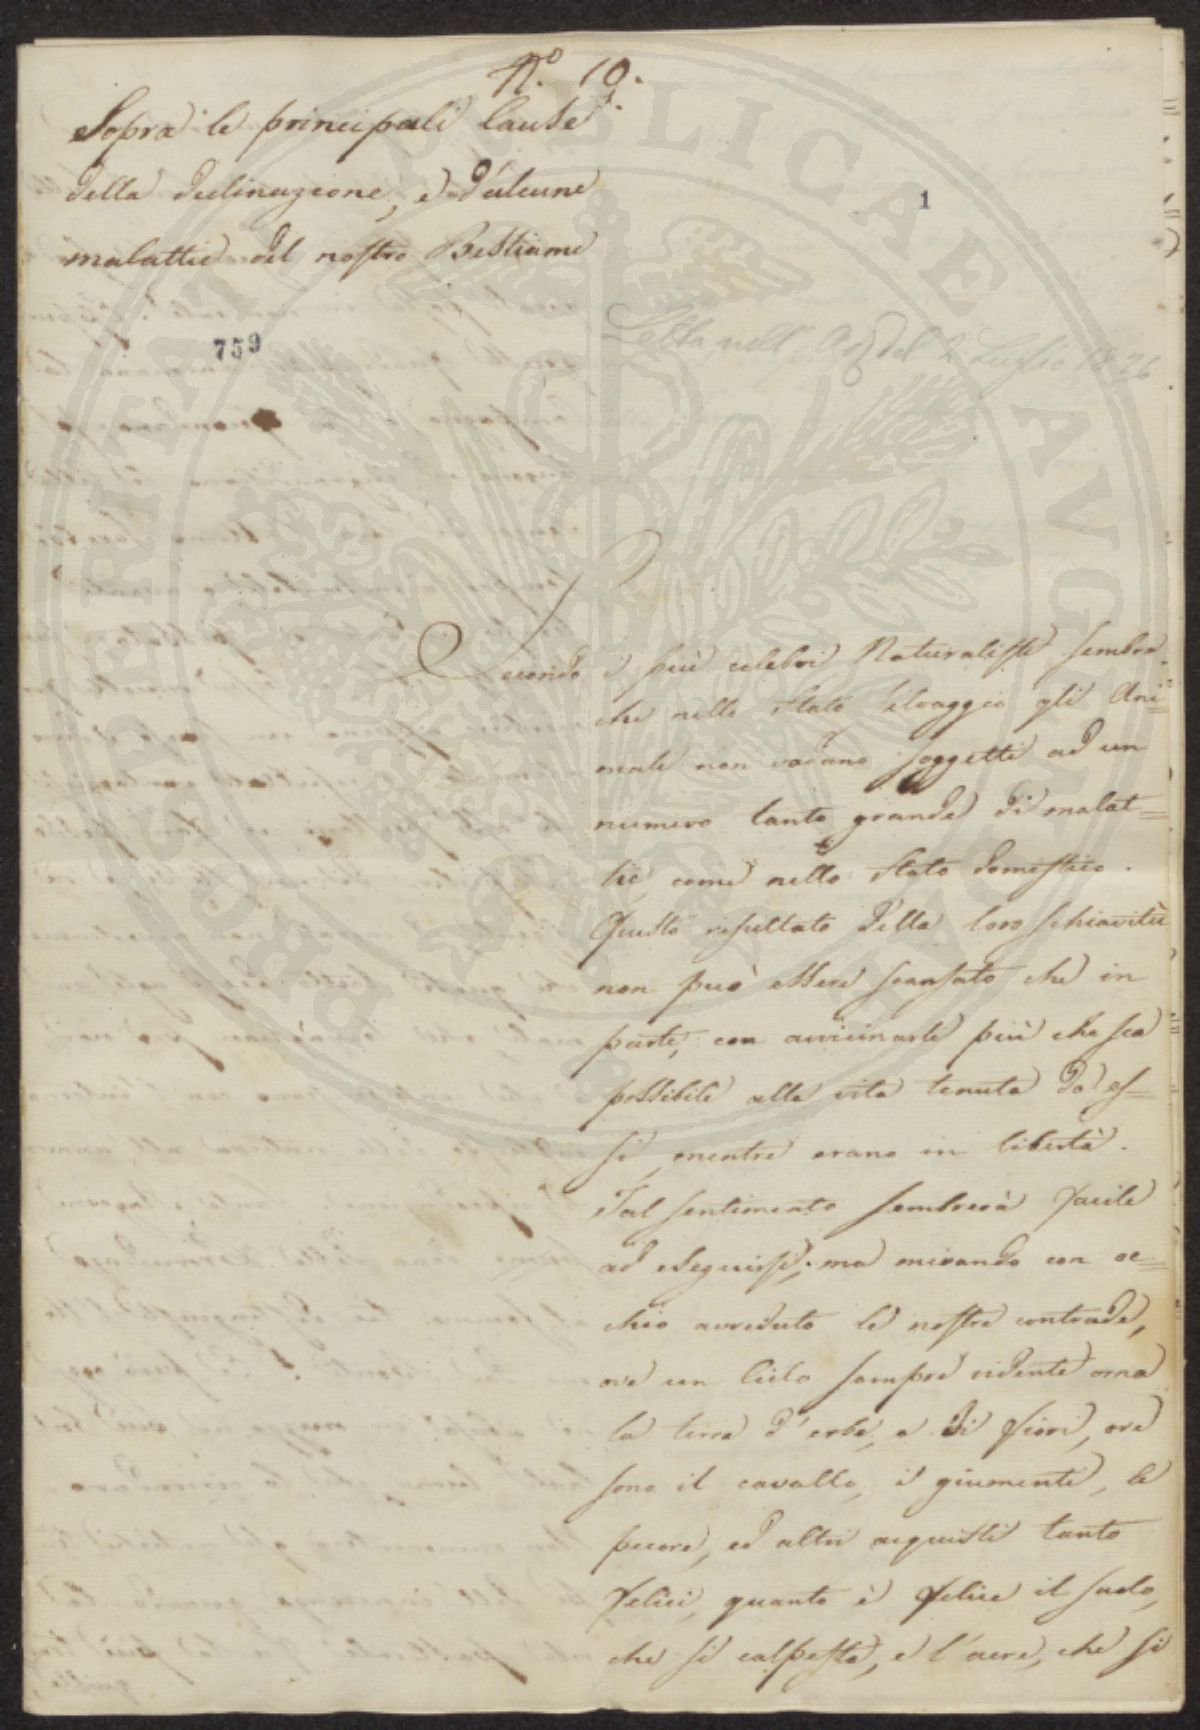 N.o 10.
Sopra le principali Cause
della declinazione, e d'alcune
malattie del nostro Bestiame
1
759
Letta nell' Ad. del 2 Luglio 1826
Secondo i più celebri Naturalisti sembra
che nello stato selvaggio gli Ani=
mali non vadano soggetti ad un
numero tanto grande di malat=
tie come nello stato domestico.
Questo risultato della loro schiavitù
non può essere scansato che in
parte, con avvicinarli più che sia
possibile alla vita tenuta da es=
si, mentre erano in libertà.
Tal sentimento sembrerà facile
ad eseguirsi; ma mirando con oc=
chio avveduto le nostre contrade,
ove un Cielo sempre ridente orna
la terra d'erbe, e di fiori, ove
sono il cavallo, i giumenti, le
pecore, ed altri acquisti tanto
felici, quanto è felice il suolo,
che si calpesta, e l'aere, che si
PROSPERITATI PVBLICAE AVGENDAE